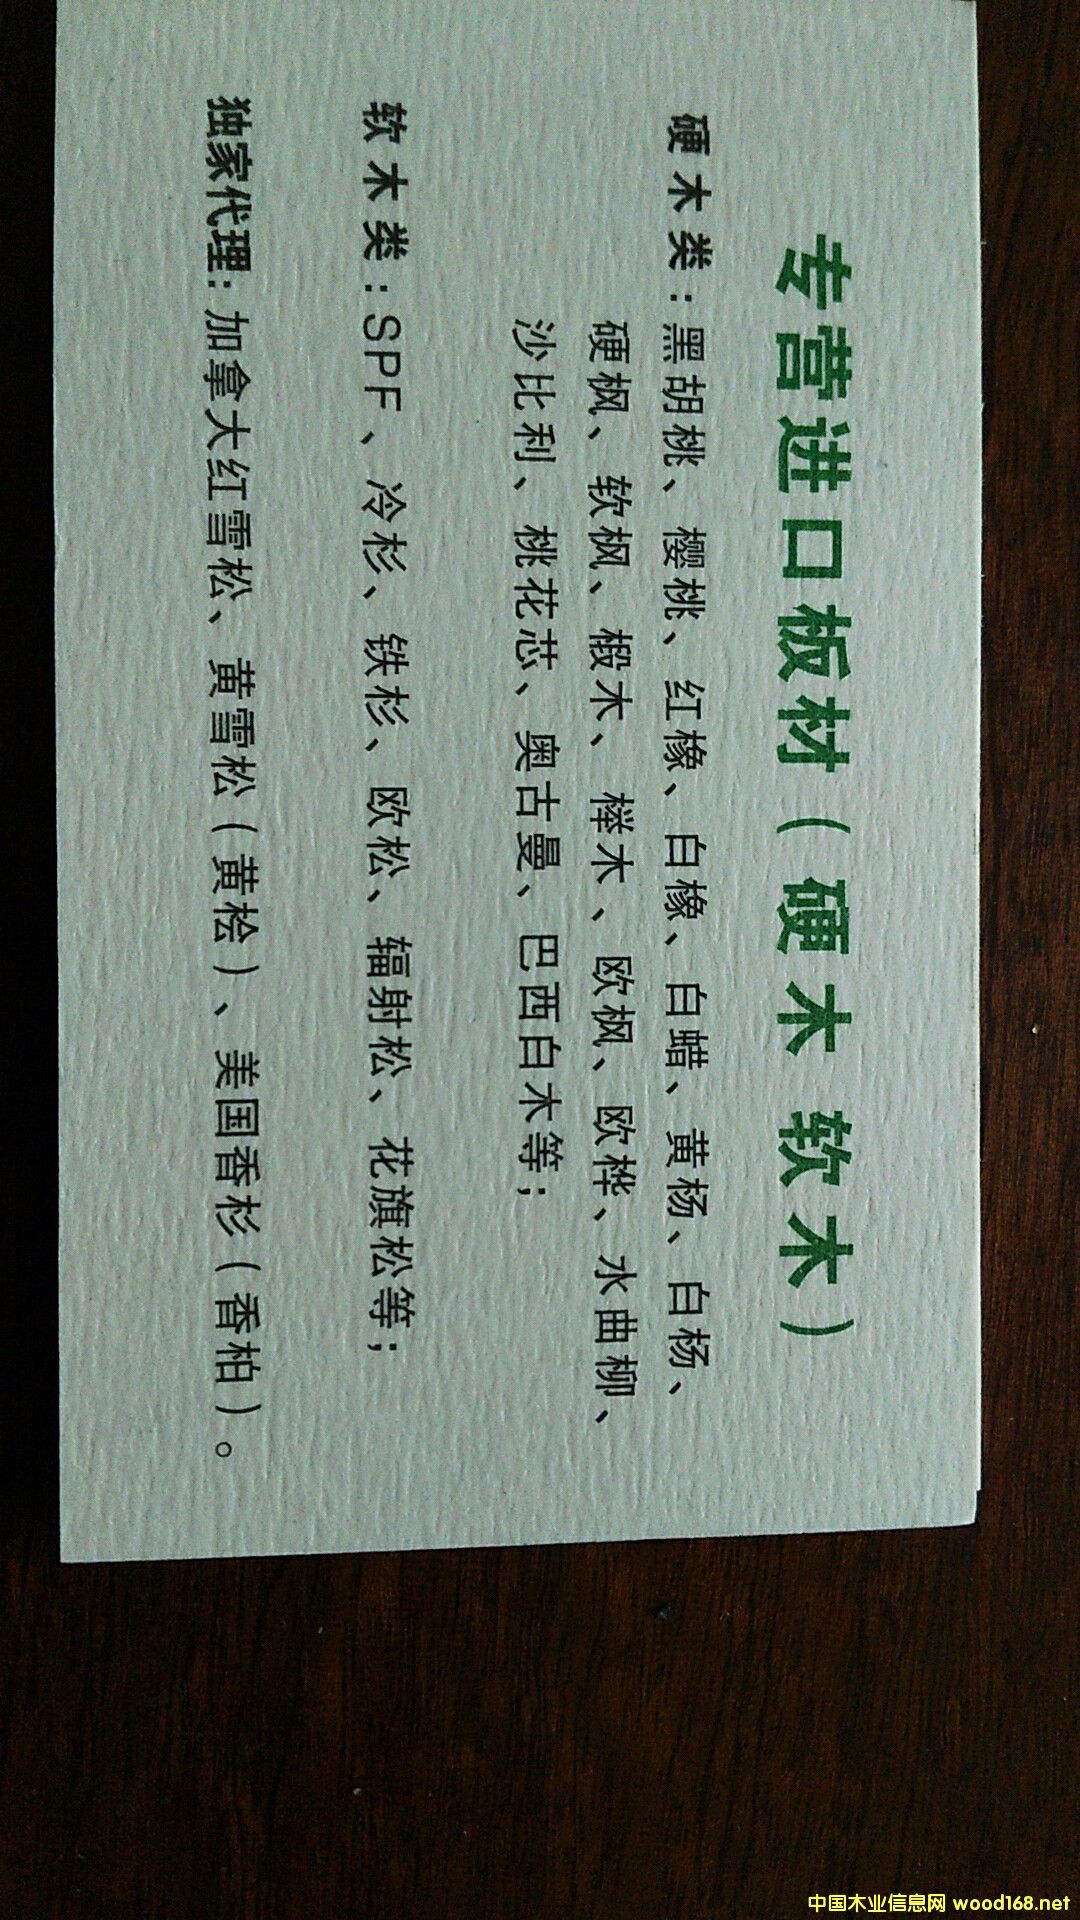 专营进口板材（硬木 软木）
硬木类：黑胡桃、樱桃、红橡、白橡、白蜡、黄杨、白杨、
硬枫、软枫、椴木、榉木、欧枫、欧桦、水曲柳、
沙比利、桃花芯、奥古曼、巴西白木等；
软木类：SPF、冷杉、铁杉、欧松、辐射松、花旗松等；
独家代理：加拿大红雪松、黄雪松（黄桧）、美国香杉（香柏）。
中国木业信息网 wood168.net